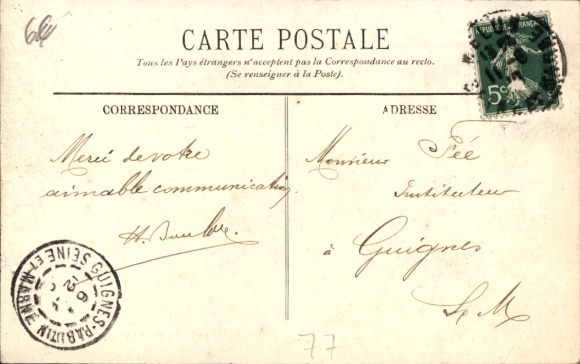 6€
CARTE POSTALE
Tous les Pays étrangers n'acceptent pas la Correspondance au recto.
(Se renseigner à la Poste).
CORRESPONDANCE
ADRESSE
REPUBLIQUE FRANÇAISE
5c
Merci de votre
aimable communication.
H.
Monsieur Fée
Instituteur
à Guignes
S. M
GUIGNES-RABUTIN SEINE-ET-MARNE
77